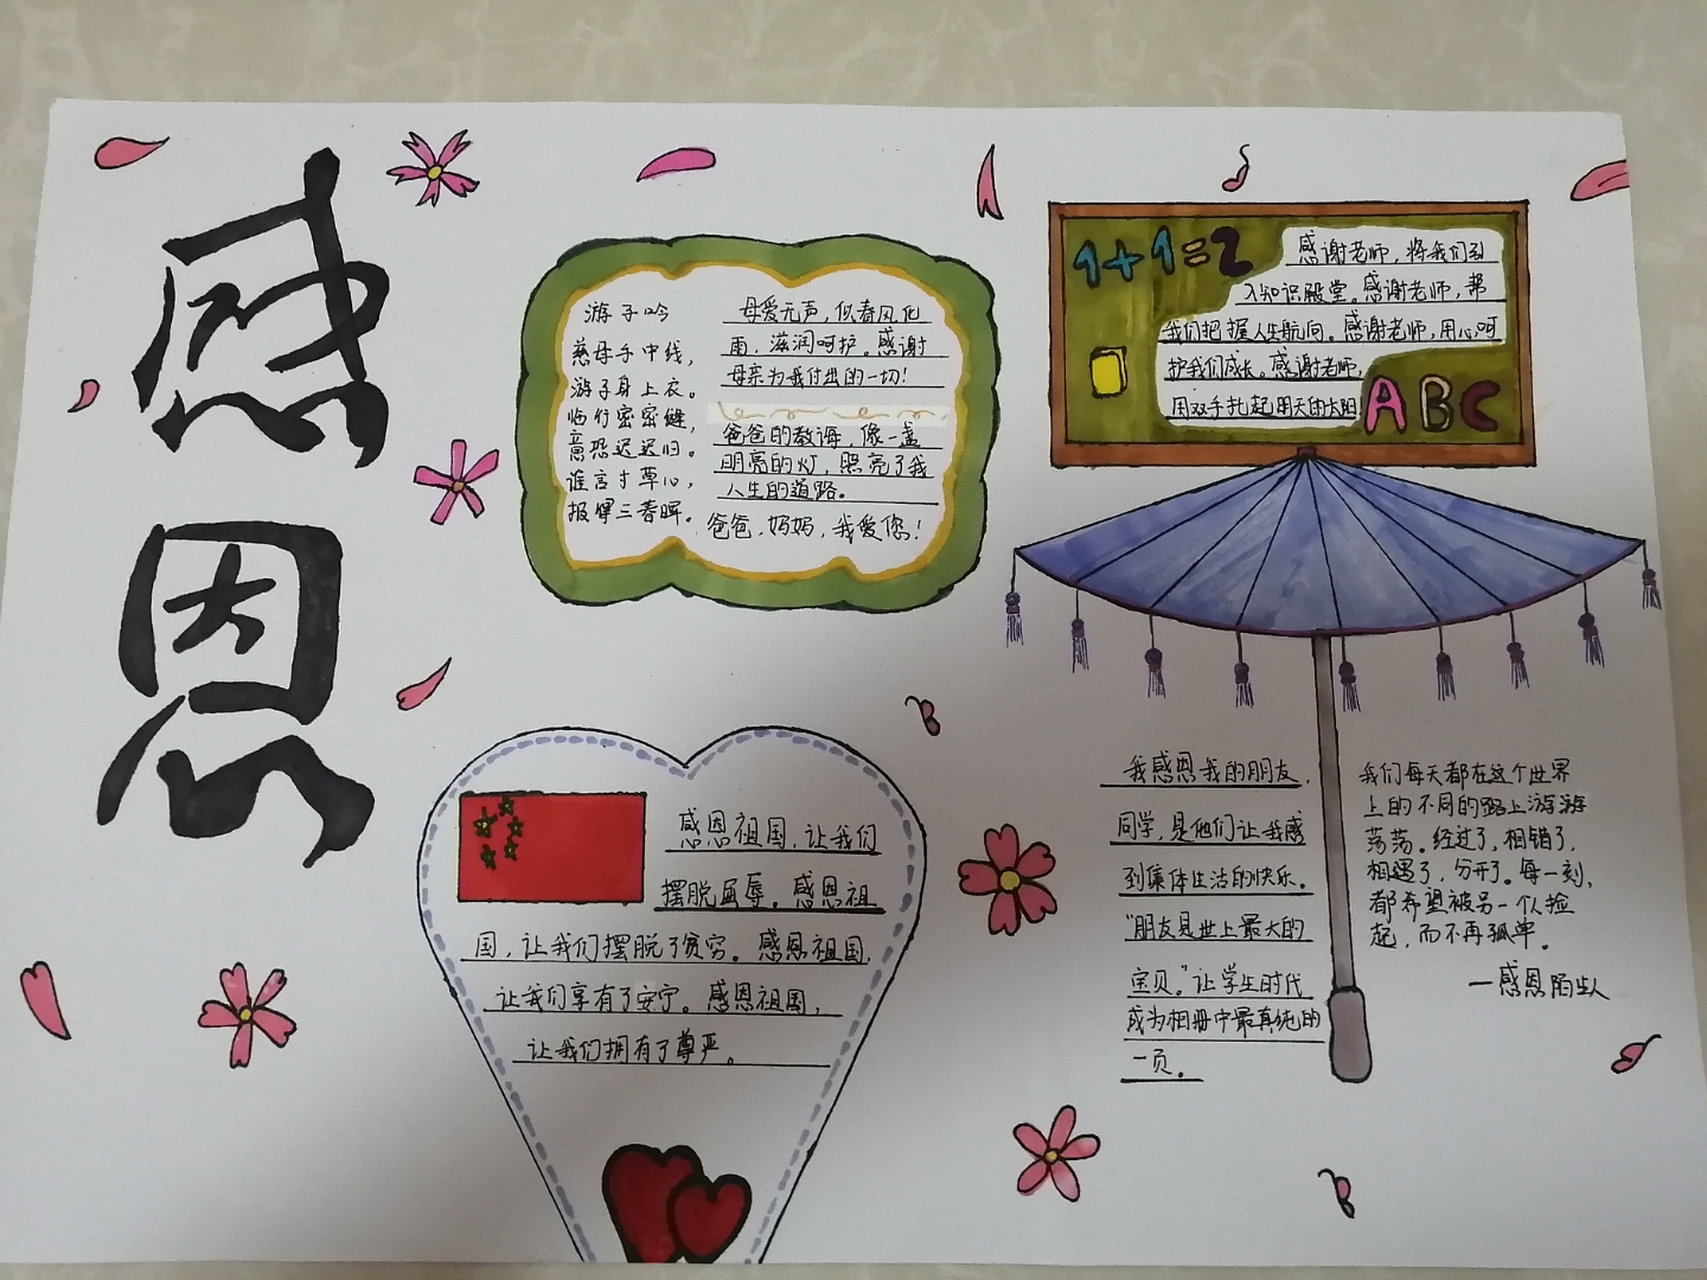 感
恩
游子吟
慈母手中线，
游子身上衣。
临行密密缝，
意恐迟迟归。
谁言寸草心，
报得三春晖。
母爱无声，似春风化
雨，滋润呵护。感谢
母亲为我付出的一切！
爸爸的教诲，像一盏
明亮的灯，照亮了我
人生的道路。
爸爸，妈妈，我爱您！
1+1=2
感谢老师，将我们引
入知识殿堂。感谢老师，帮
我们把握人生航向。感谢老师，用心呵
护我们成长。感谢老师，
用双手托起明天的太阳
ABC
感恩祖国，让我们
摆脱屈辱。感恩祖
国，让我们摆脱了贫穷。感恩祖国，
让我们享有了安宁。感恩祖国，
让我们拥有了尊严。
我感恩我的朋友，
同学，是他们让我感
到集体生活的快乐。
“朋友是世上最大的
宝贝。”让学生时代
成为相册中最真纯的
一页。
我们每天都在这个世界
上的不同的路上游游
荡荡。经过了，相错了，
相遇了，分开了。每一刻，
都希望被另一个人捡
起，而不再孤单。
—感恩陌生人